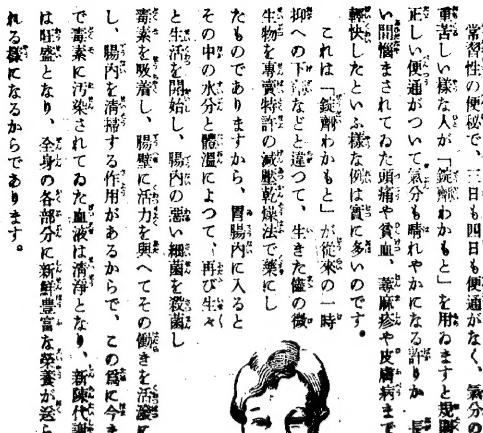 常習性の便秘で、三日も四日も便通がなく、氣分の
重苦しい樣な人が「錠劑わかもと」を用ゐますと規則
正しい便通がついて氣分も晴れやかになる許りか 長
い間惱まされてゐた頭痛や貧血、蕁麻疹や皮膚病まで
輕快したといふ樣な例は實に多いのです。
これは「錠劑わかもと」が從來の一時
抑への下劑などと違つて、生きた儘の微
生物を專賣特許の減壓乾燥法で藥にし
たものでありますから、胃腸內に入ると
その中の水分と體溫によつて、再び生々
と生活を開始し、腸內の惡い細菌を殺菌し
毒素を吸着し、腸壁に活力を與へてその働きを活潑に
し、腸內を清掃する作用があるからで、この爲に今ま
で毒素に汚染されてゐた血液は清淨となり、新陳代謝
は旺盛となり、全身の各部分に新鮮豐富な榮養が送ら
れる樣になるからであります。